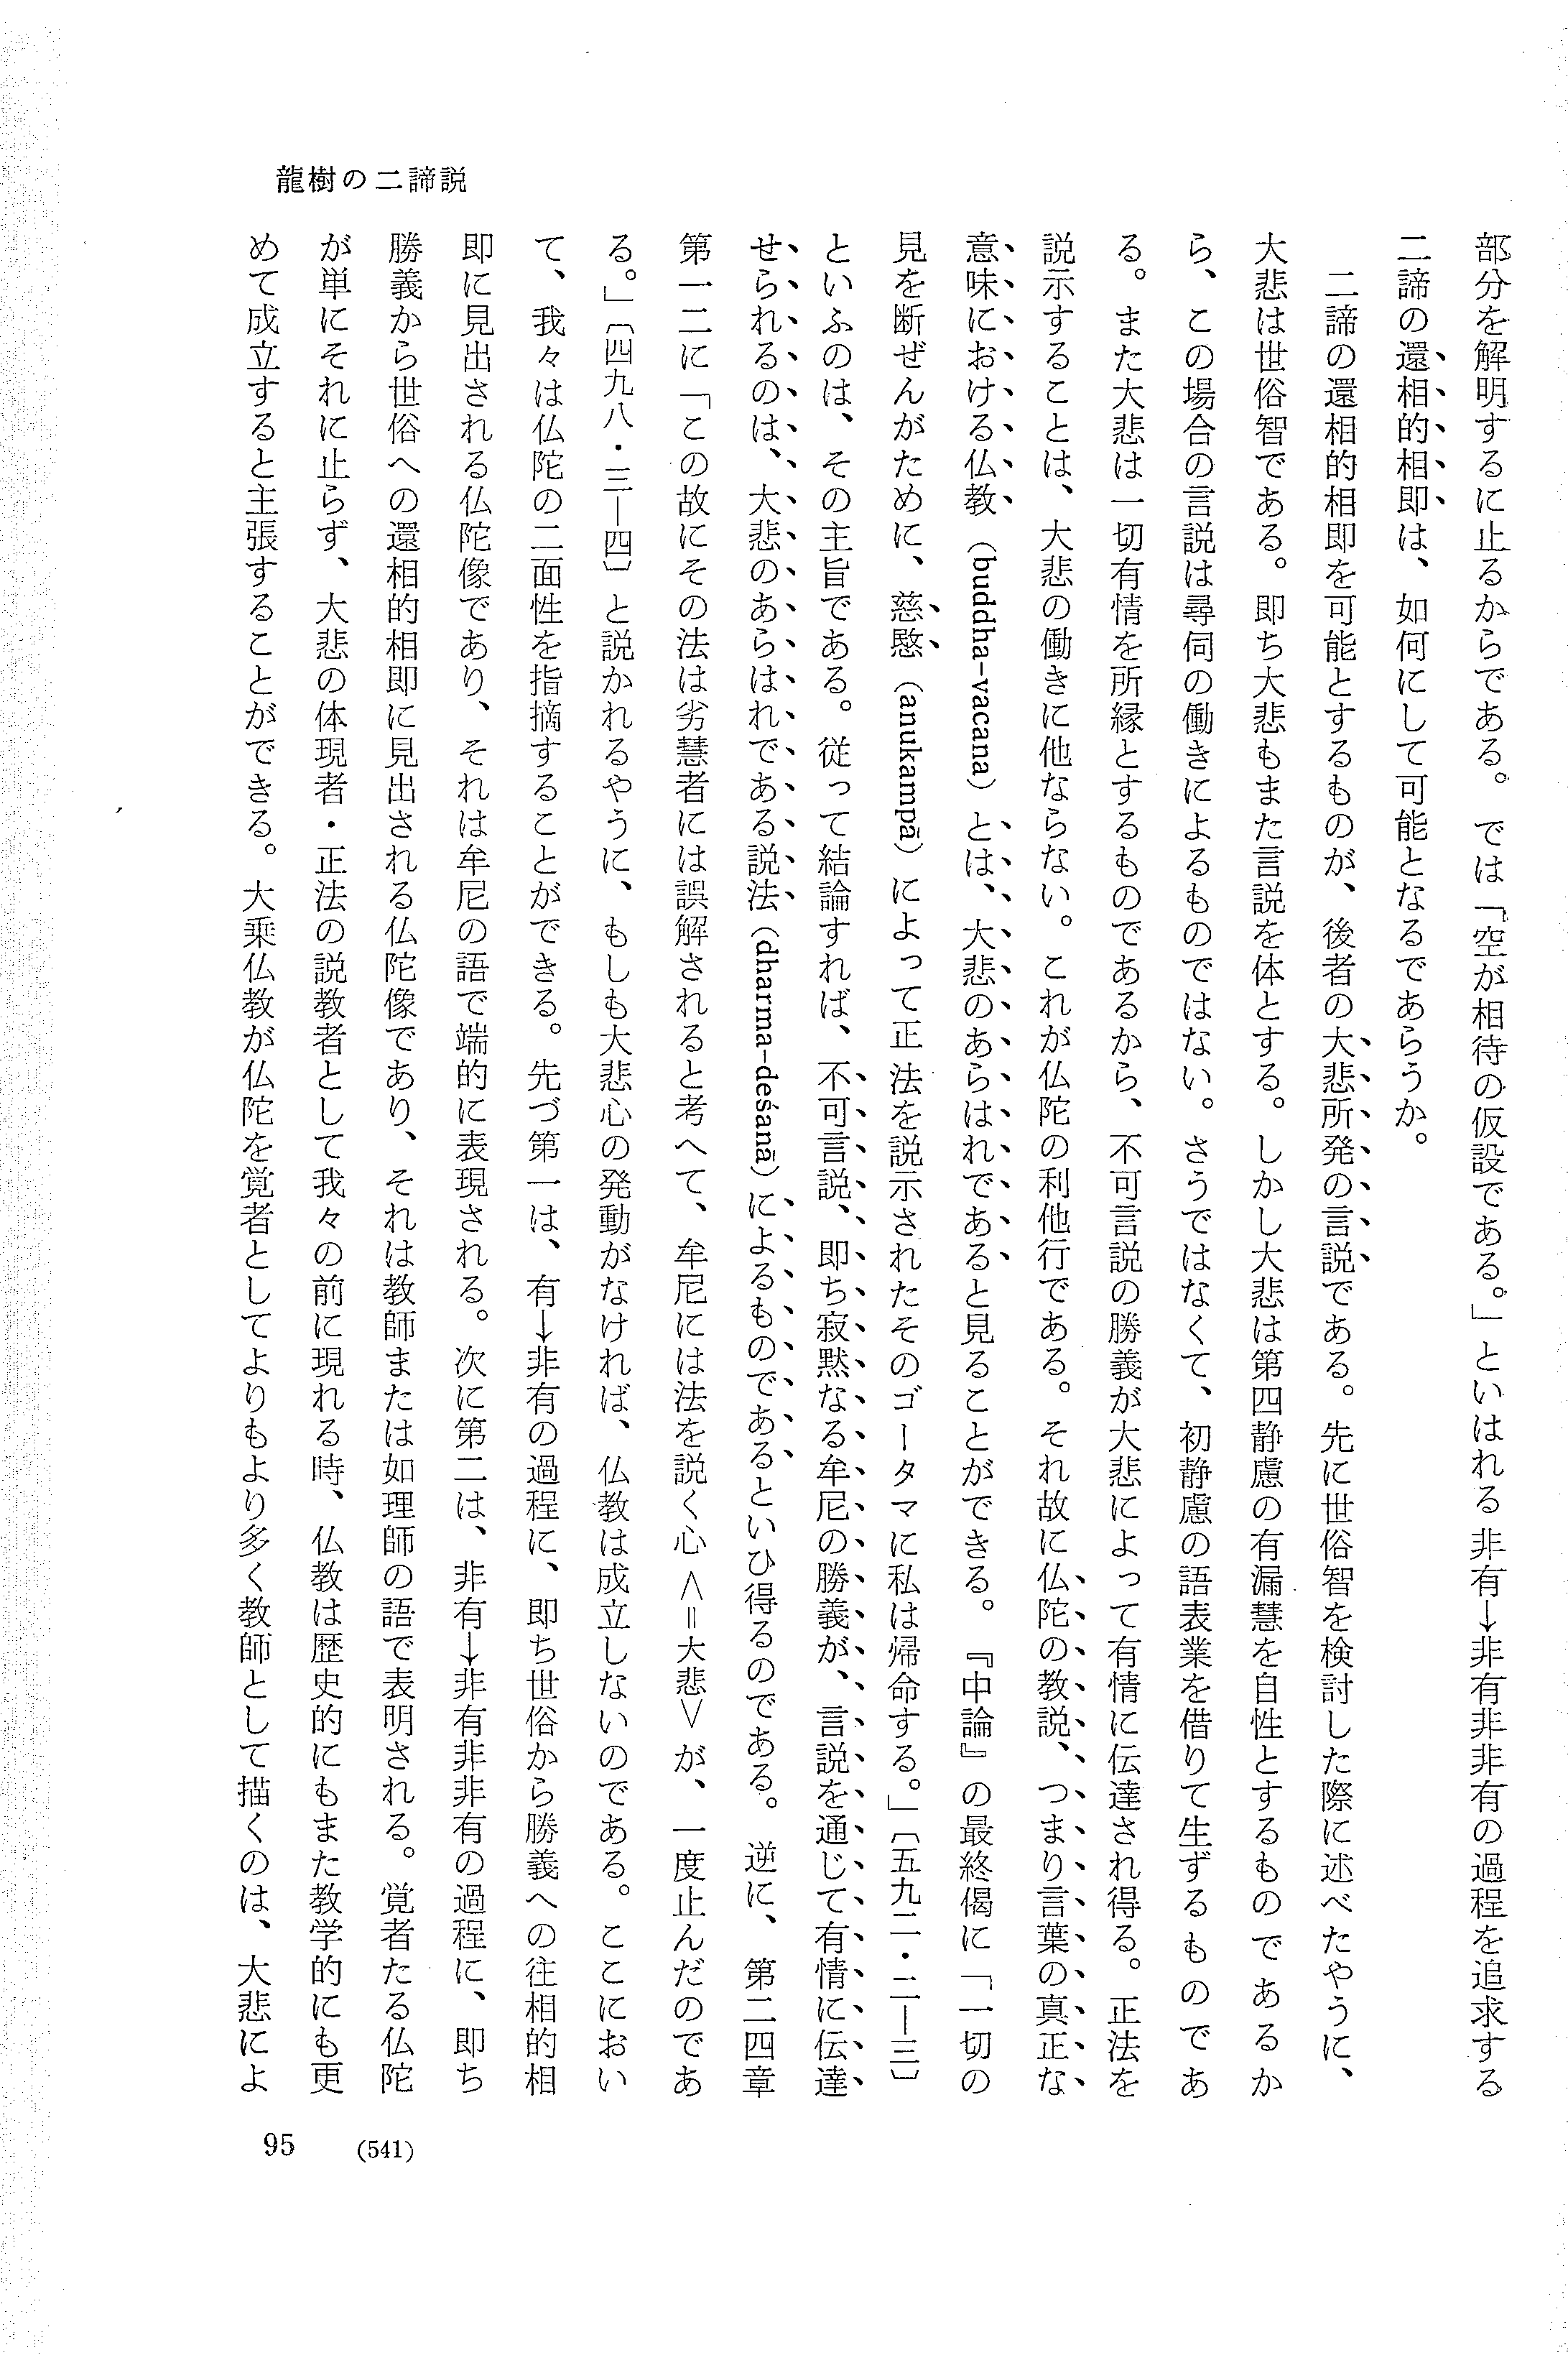 龍樹の二諦説
部分を解明するに止るからである。では「空が相待の仮設である。」といはれる非有→非有非非有の過程を追求する
二諦の還相的相即は、如何にして可能となるであらうか。
二諦の還相的相即を可能とするものが、後者の大悲所発の言説である。先に世俗智を検討した際に述べたやうに、
大悲は世俗智である。即ち大悲もまた言説を体とする。しかし大悲は第四静慮の有漏慧を自性とするものであるか
ら、この場合の言説は尋伺の働きによるものではない。さうではなくて、初静慮の語表業を借りて生ずるものであ
る。また大悲は一切有情を所縁とするものであるから、不可言説の勝義が大悲によって有情に伝達され得る。正法を
説示することは、大悲の働きに他ならない。これが仏陀の利他行である。それ故に仏陀の教説、つまり言葉の真正な
意味における仏教（buddha-vacana）とは、大悲のあらはれであると見ることができる。『中論』の最終偈に「一切の
見を断ぜんがために、慈愍（anukampā）によって正法を説示されたそのゴータマに私は帰命する。」〔五九二・二―三〕
といふのは、その主旨である。従って結論すれば、不可言説、即ち寂黙なる牟尼の勝義が、言説を通じて有情に伝達
せられるのは、大悲のあらはれである説法（dharma-deśanā）によるものであるといひ得るのである。逆に、第二四章
第一二に「この故にその法は劣慧者には誤解されると考へて、牟尼には法を説く心＜＝大悲＞が、一度止んだのであ
る。」〔四九八・三―四〕と説かれるやうに、もしも大悲心の発動がなければ、仏教は成立しないのである。ここにおい
て、我々は仏陀の二面性を指摘することができる。先づ第一は、有→非有の過程に、即ち世俗から勝義への往相的相
即に見出される仏陀像であり、それは牟尼の語で端的に表現される。次に第二は、非有→非有非非有の過程に、即ち
勝義から世俗への還相的相即に見出される仏陀像であり、それは教師または如理師の語で表明される。覚者たる仏陀
が単にそれに止らず、大悲の体現者・正法の説教者として我々の前に現れる時、仏教は歴史的にもまた教学的にも更
めて成立すると主張することができる。大乗仏教が仏陀を覚者としてよりもより多く教師として描くのは、大悲によ
95
(541)